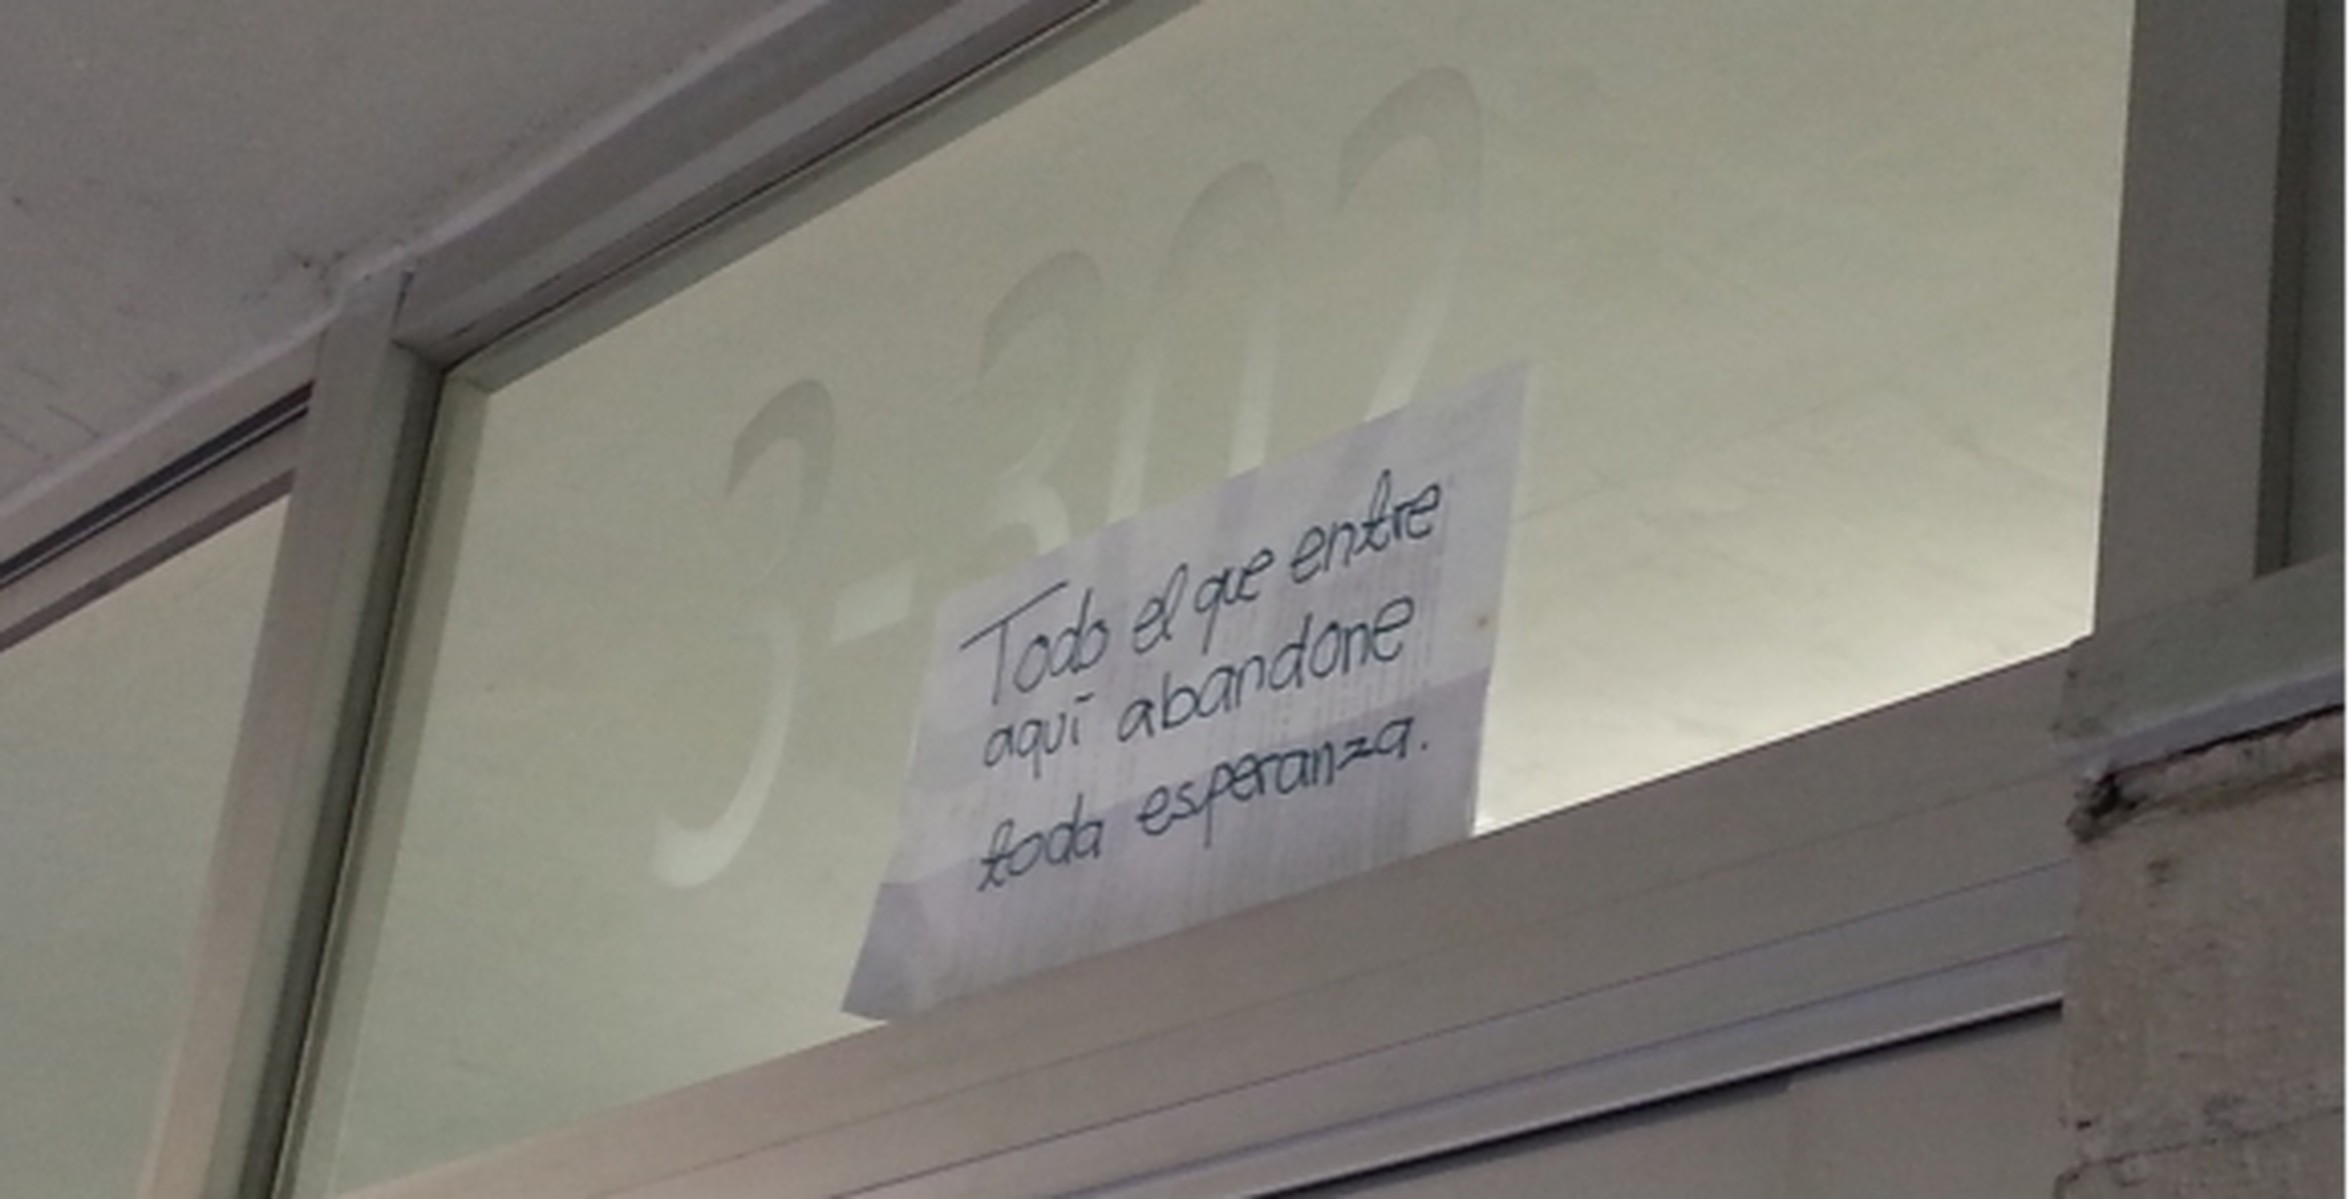 3-302
Todo el que entre
aquí abandone
toda esperanza.